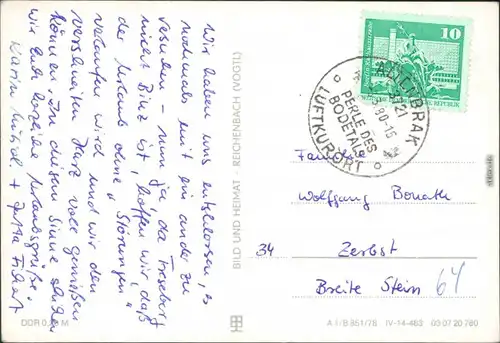 Wir haben uns entschlossen, es
nochmals mit ein ander zu
versuchen - nun ja, da Treseburg
nicht Binz ist, hoffen wir, daß
der Urlaub ohne "Störungen"
verlaufen wird und wir den
Harz voll genießen
können. In diesem Sinne senden
wir Euch herzliche Urlaubsgrüße.
Karin + Jutta
DDR 0,20 M
BILD UND HEIMAT · REICHENBACH (VOGTL)
10
ALTENBRAK
3721
80-15
PERLE DES
BODETALS
LUFTKURORT
Familie
Wolfgang Bonath
34 Zerbst
Breite Stein 64
A 1/B 851/78 IV-14-483 03 07 20 780